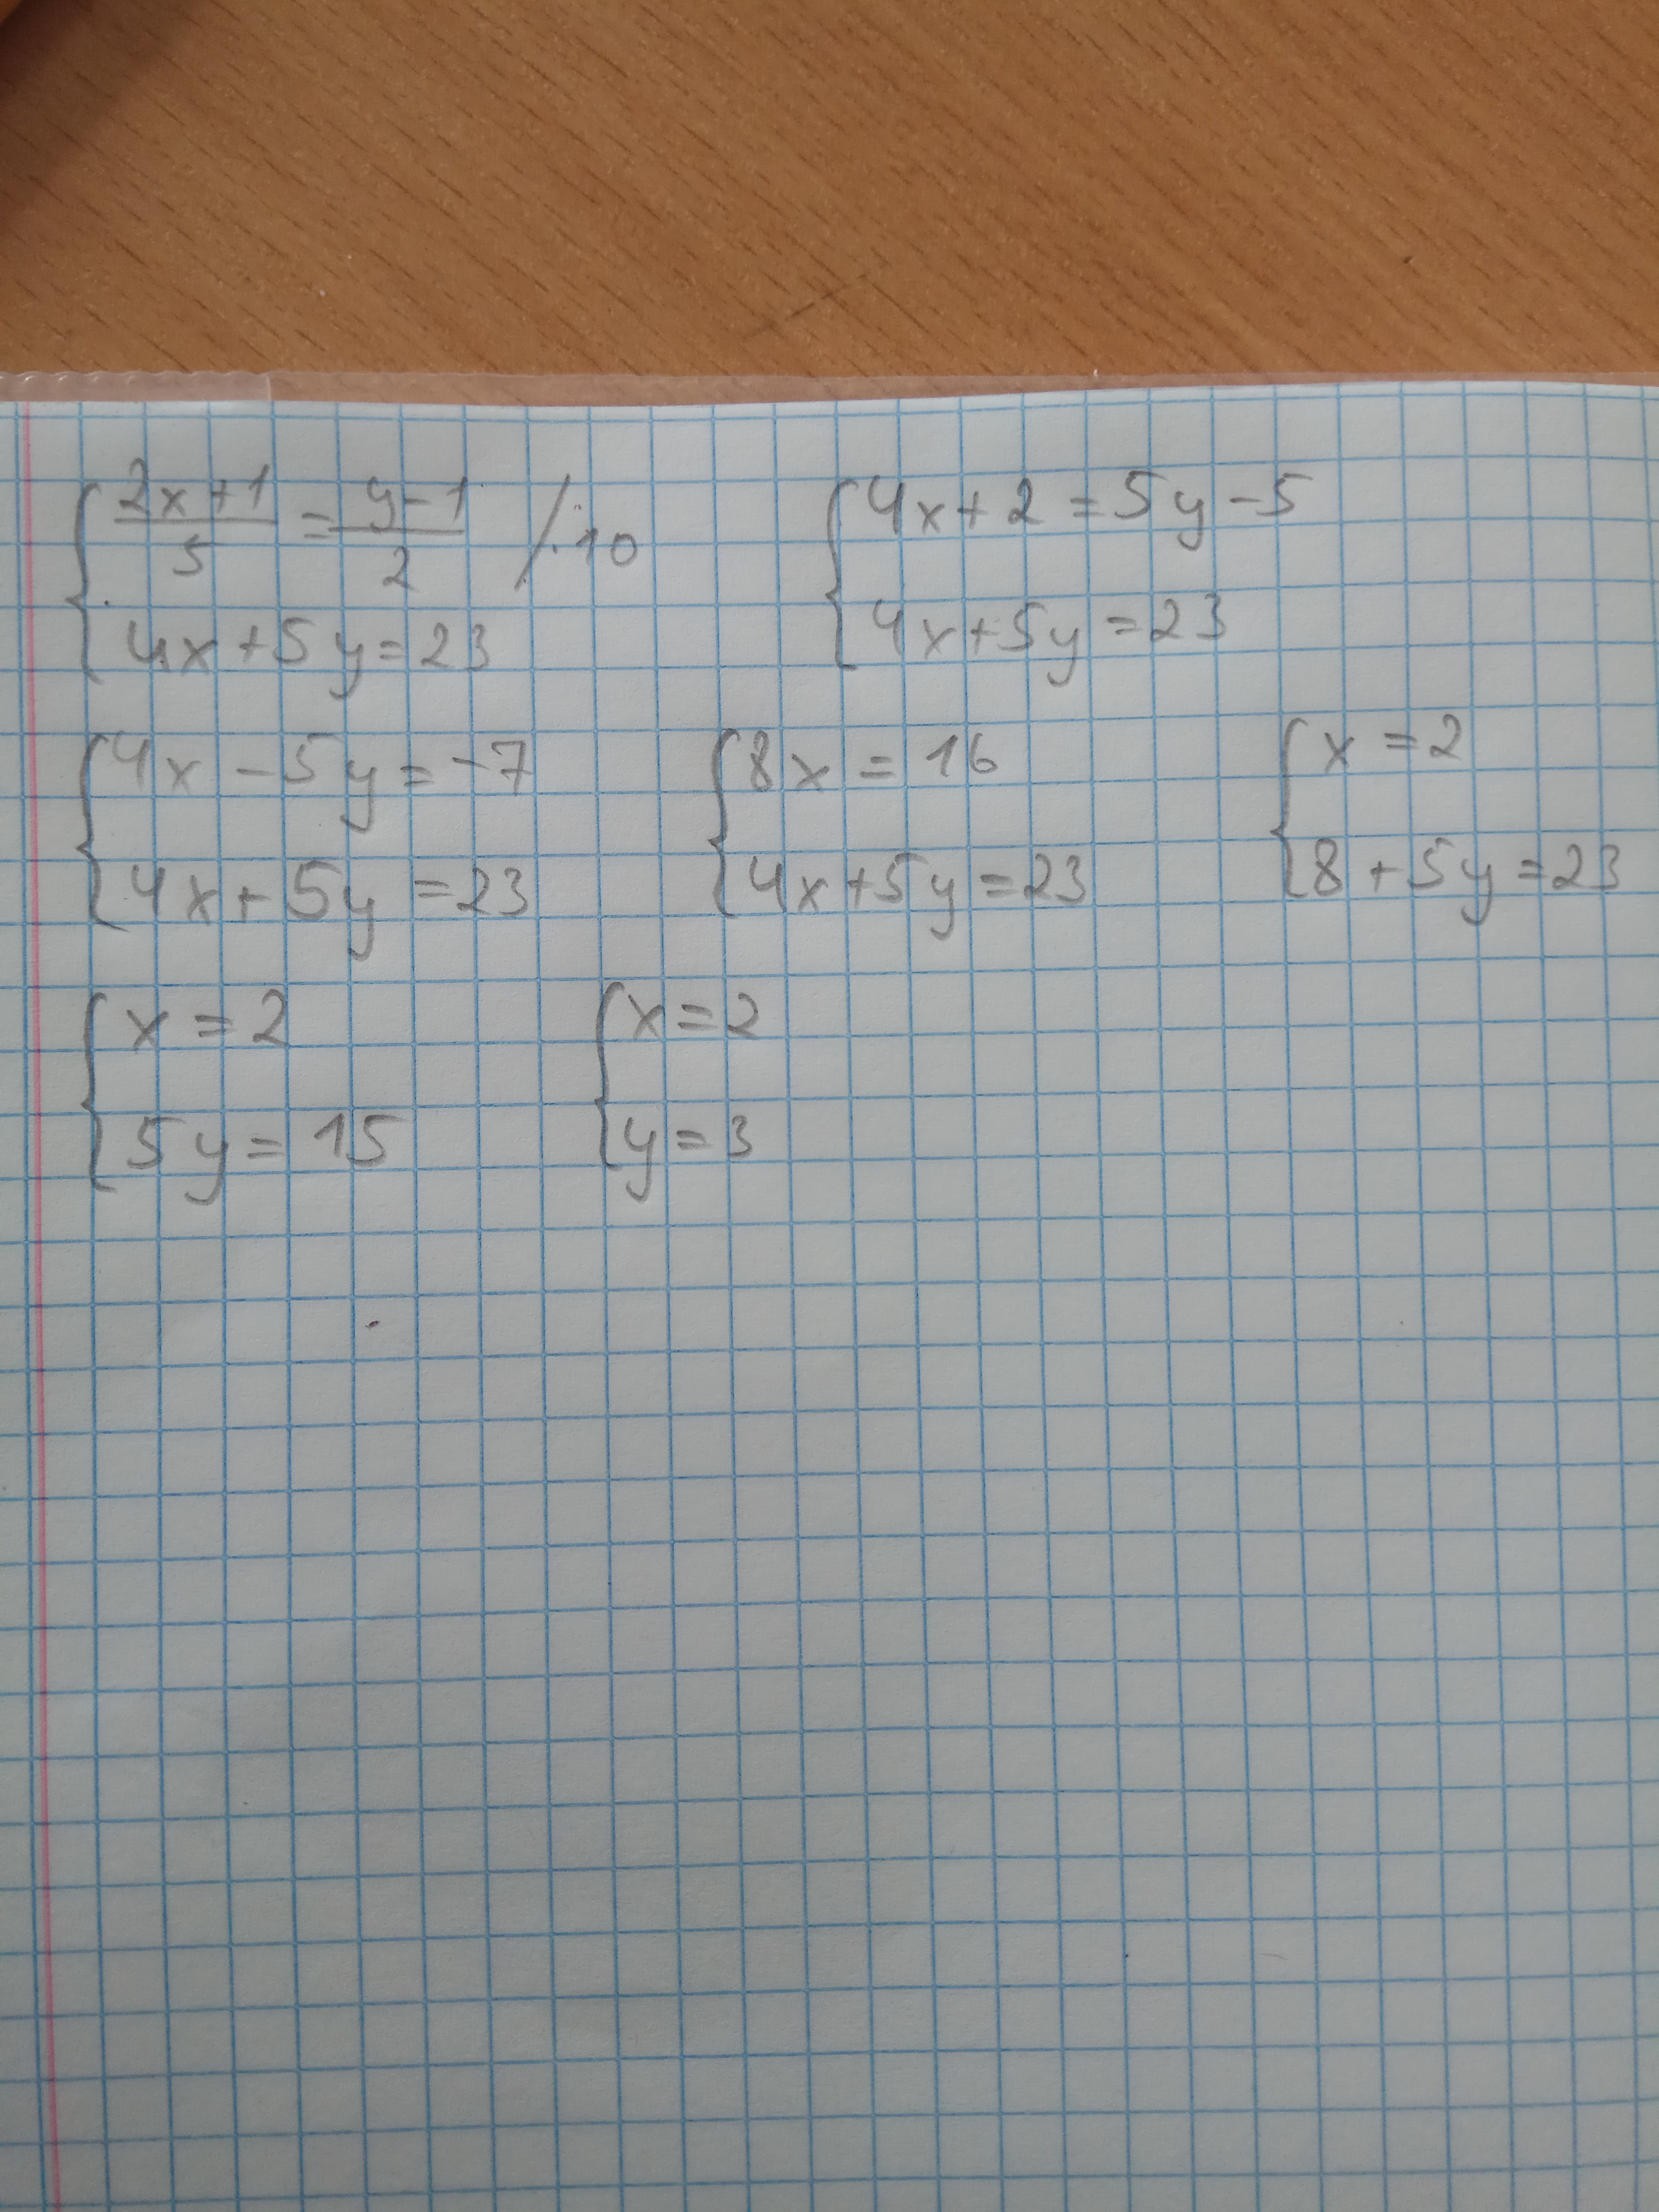 { (2x+1)/5 = (y-1)/2 /·10
4x+5y=23
{ 4x+2=5y-5
4x+5y=23
{ 4x-5y=-7
4x+5y=23
{ 8x=16
4x+5y=23
{ x=2
8+5y=23
{ x=2
5y=15
{ x=2
y=3